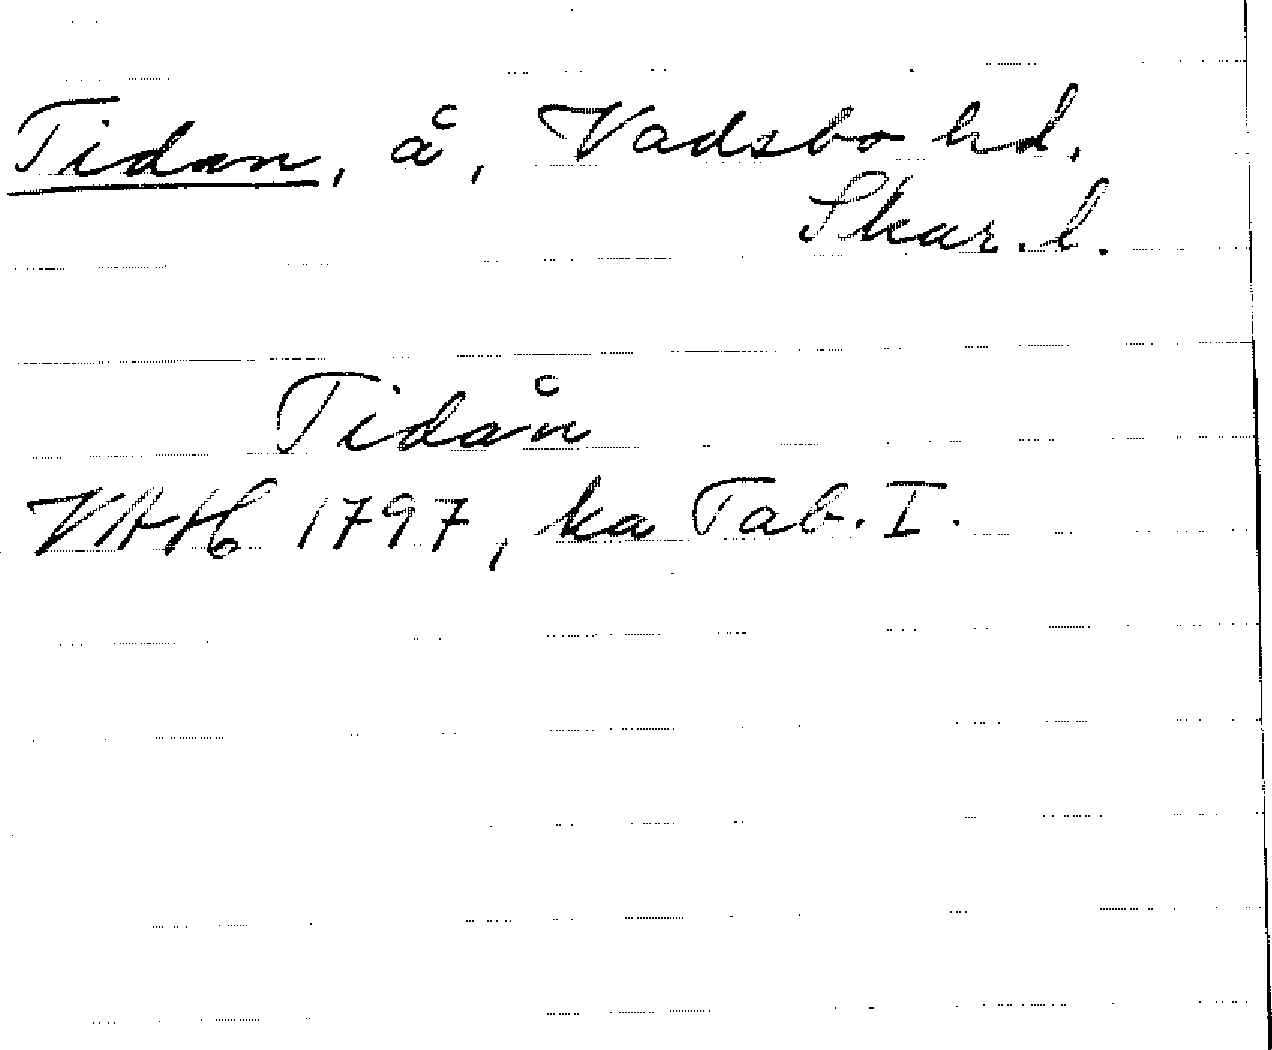 Tidan, å, Vadsbo hd.
Skar. l.
Tidån
VAH 1797, ka Tab. I.